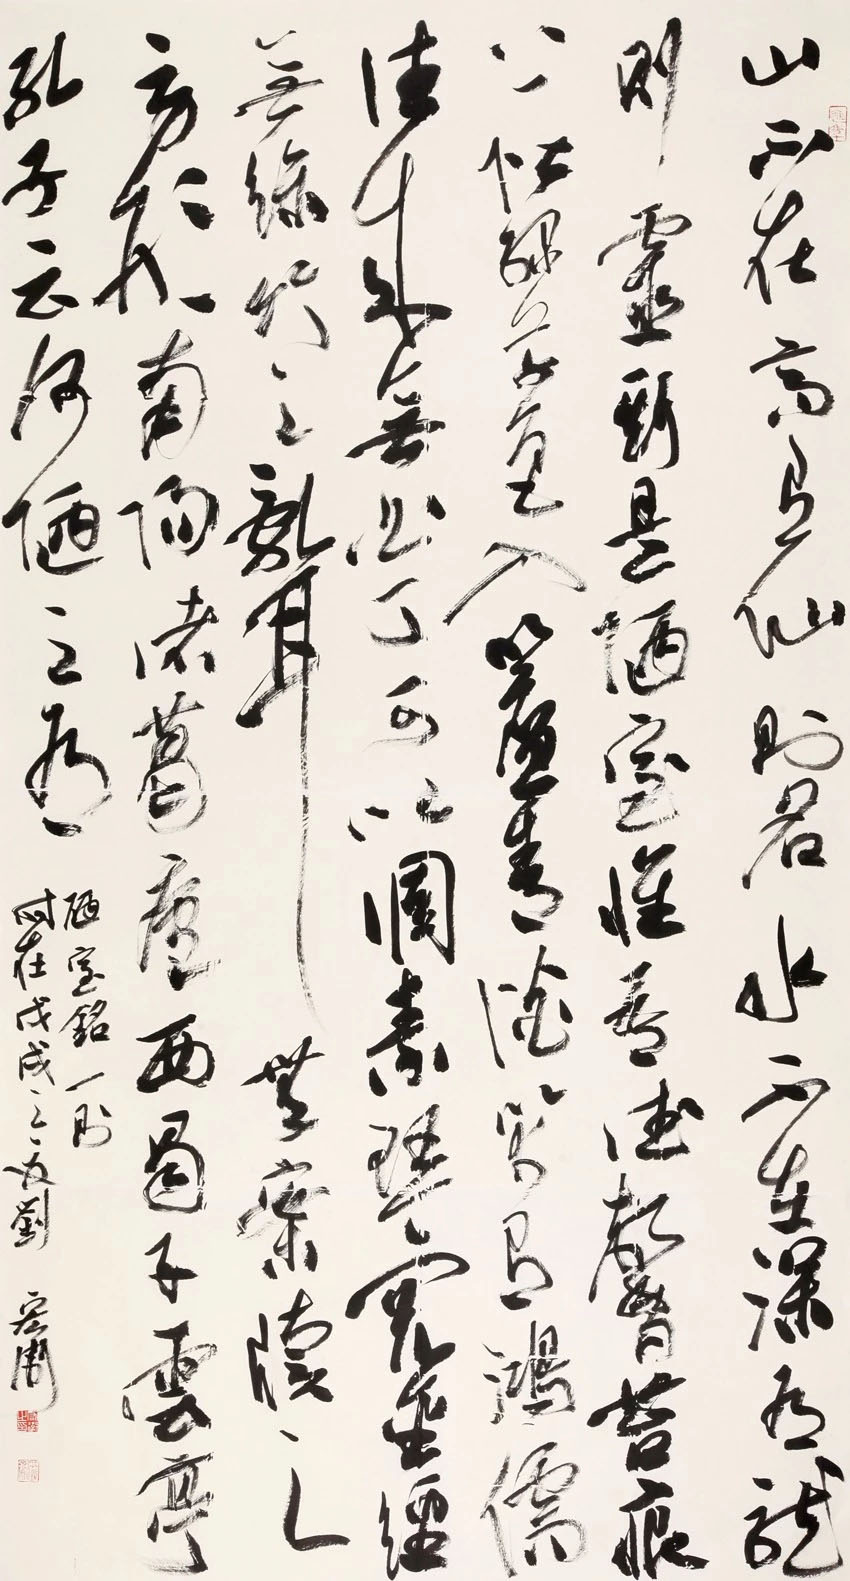 山不在高有仙則名水不在深有龍
則靈斯是陋室惟吾德馨苔痕
上階緑草色入簾青談笑有鴻儒
往來無白丁可以調素琴閱金經
無絲竹之亂耳無案牘之
勞形南陽諸葛廬西蜀子雲亭
孔子云何陋之有
陋室銘一則
時在戊戌之夏劉